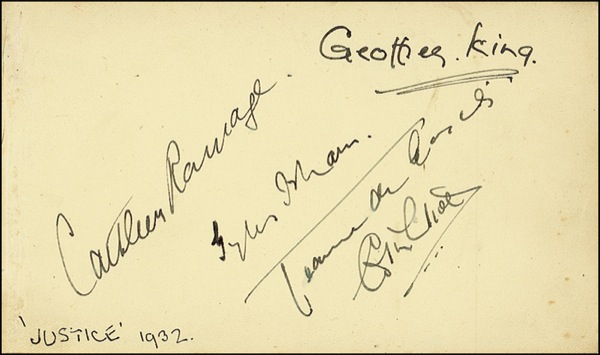 Geoffrey King.
Cathleen Ramage.
Gyles Isham.
Jeanne de Casalis
Colin Clive
'JUSTICE' 1932.